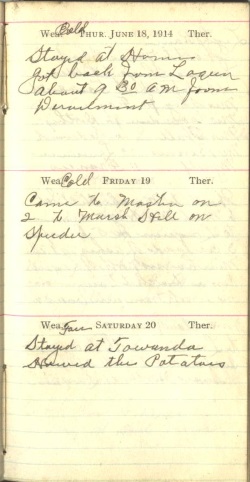 Wea. Cold THUR. JUNE 18, 1914 Ther.
Stayed at Home
got back from Laquin
about 9 30 A M from
Derailment
Wea. Cold FRIDAY 19 Ther.
Came to Masten on
2 to Marsh Hill on
Speeder
Wea. Fair SATURDAY 20 Ther.
Stayed at Towanda
Howed the Potatoes